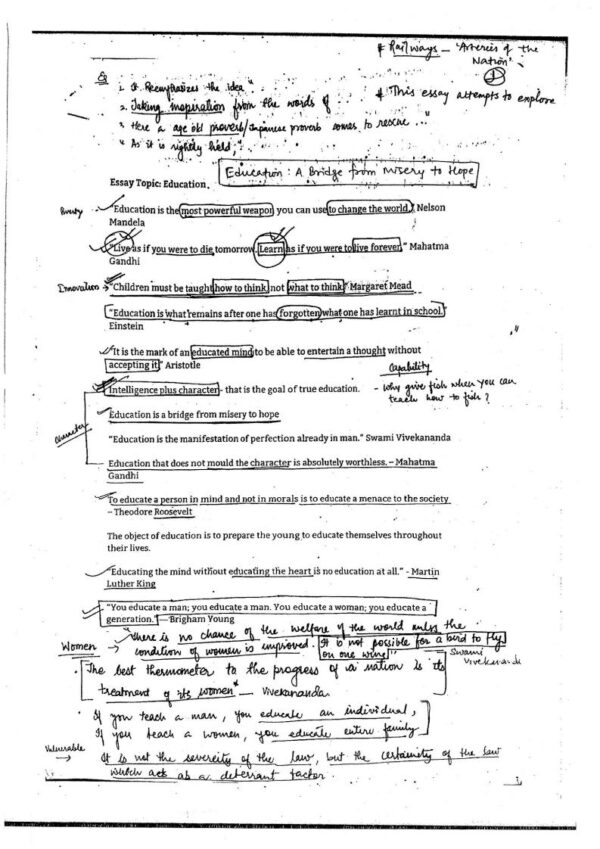 * Railways – 'Arteries of the
Nation'
①
* This essay attempts to explore
1. It Reemphasizes the idea"
2. Taking inspiration from the words of
3. Here a age old proverb/Japanese proverb comes to rescue ..."
4. As it is rightly held,"
Education : A Bridge from Misery to Hope
Essay Topic: Education.
"Education is the most powerful weapon you can use to change the world." Nelson
Mandela
"Live as if you were to die tomorrow. Learn as if you were to live forever." Mahatma
Gandhi
Innovation → "Children must be taught how to think not what to think" Margaret Mead
"Education is what remains after one has forgotten what one has learnt in school."
Einstein
"It is the mark of an educated mind to be able to entertain a thought without
accepting it" Aristotle
Capability
Intelligence plus character - that is the goal of true education.
- Why give fish when you can
teach how to fish?
Education is a bridge from misery to hope
Character
"Education is the manifestation of perfection already in man." Swami Vivekananda
Education that does not mould the character is absolutely worthless. – Mahatma
Gandhi
To educate a person in mind and not in morals is to educate a menace to the society
– Theodore Roosevelt
The object of education is to prepare the young to educate themselves throughout
their lives.
"Educating the mind without educating the heart is no education at all." - Martin
Luther King
"You educate a man; you educate a man. You educate a woman; you educate a
generation." — Brigham Young
Women → "There is no chance of the welfare of the world unless the
condition of women is improved. It is not possible for a bird to fly
on one wing" Swami
Vivekanandi
The best thermometer to the progress of a nation is its
treatment of its women" – Vivekananda.
If you teach a man, you educate an individual,
If you teach a women, you educate entire family
Vulnerable → It is not the severity of the law, but the certainity of the law
which act as a deterrant factor.
1